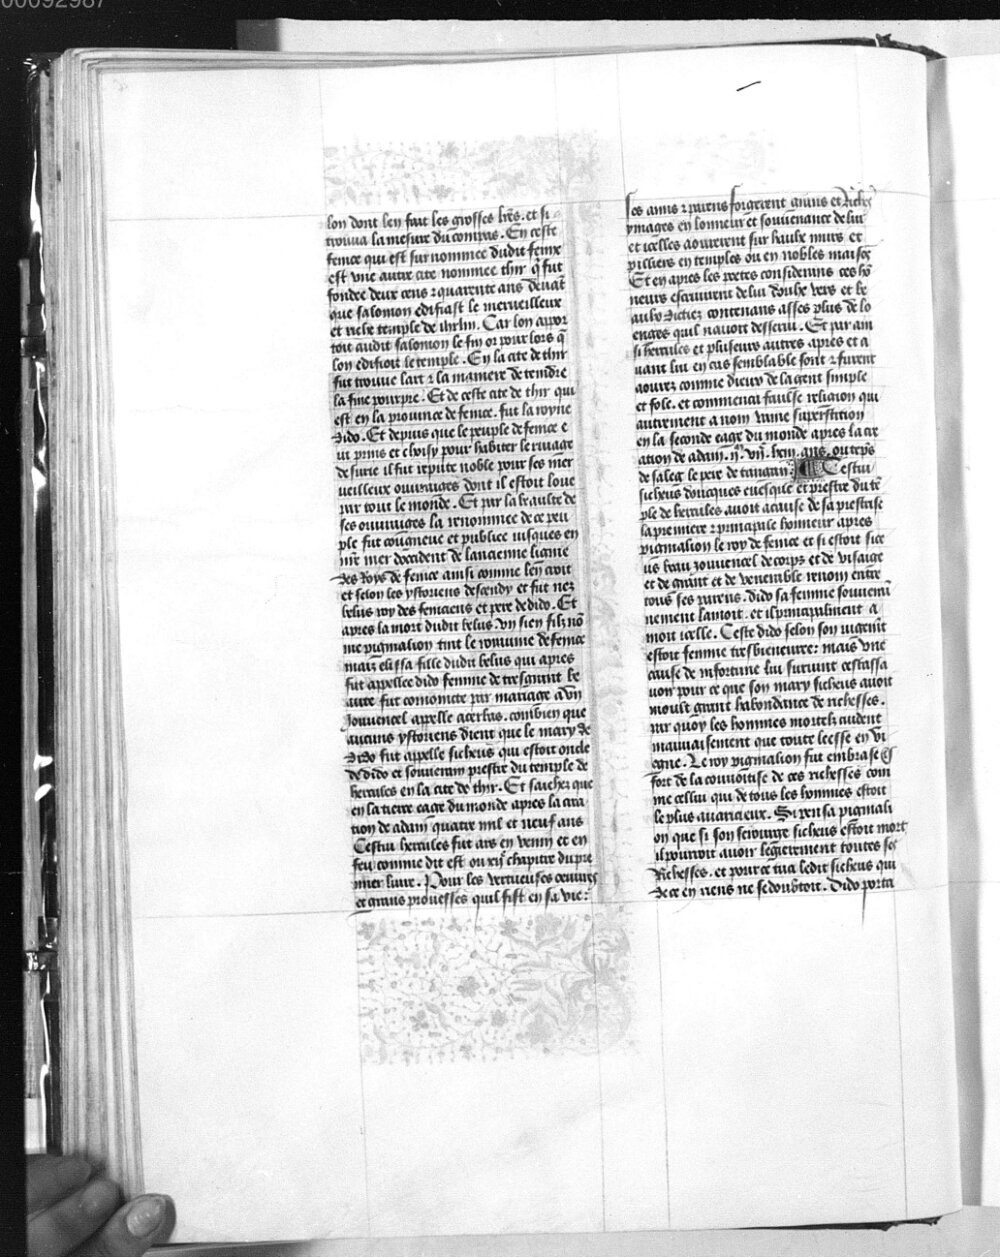 00092987
lon dont len fait les grosses lr̃es. et si
trouua la mesure du compas. En ceste
fenice qui est surnommee dudit fenix
est vne autre cite nommee thir q̃ fut
fondee deux cens ⁊ quarante ans deuãt
que salomon edifiast le merueilleux
et riche temple de ihrlm̃. Car lon appor
toit audit salomon le fin or pour lors q̃
lon edifioit le temple. En la cite de thir
fut trouue lart ⁊ la maniere de teindre
la fine pourpre. Et de ceste cite de thir qui
est en la prouince de fenice. fut la royne
dido. Et depuis que le peuple de fenice e
ut prins et choisy pour habiter le riuage
de surie il fut repute noble pour ses mer
ueilleux ouuraiges dont il estoit loue
par tout le monde. Et par la beaulte de
ses ouuraiges la renommee de ce peu
ple fut congneue et publiee iusques en
nr̃e mer doccident de lancienne lignie
des Roys de fenice ainsi comme len croit
et selon les ystoriens descendy et fut nez
belus roy des feniciens et pere de dido. Et
apres la mort dudit belus. vn sien filz nõ
me pigmalion tint le royaume de fenice
maiz elissa fille dudit belus qui apres
fut appellee dido femme de tresgrant be
aute fut conioincte par mariage a vn
Jouuencel appelle acerbas. combien que
aucuns ystoriens dient que le mary de
Dido fut appelle sicheus qui estoit oncle
de dido et souuerain prestre du temple de
hercules en la cite de thir. Et saichez que
en la tierce eage du monde apres la crea
tion de adam quatre mil et neuf ans
Cestui hercules fut ars en venin et en
feu comme dit est ou xij.e chapitre du pre
mier liure. Pour les vertueuses oeuures
et grans prouesses quil fist en sa vie:
ses amis ⁊ parens forgierent grans et Riches
ymages en lonneur et souuenance de lui
et icelles aourerent sur haulx murs et
pilliers en temples ou en nobles maisõs
Et en apres les poetes considerans ces hõ
neurs escriuirent de lui doulx vers et be
aulx dictiez contenans asses plus de lo
enges quil nauoit desserui. Et par ain
si hercules et plusieurs autres apres et a
uant lui en cas semblable sont ⁊ furent
aourez comme dieux de la gent simple
et fole. et commenca faulse religion qui
autrement a nom vaine superstition
en la seconde eage du monde apres la cre
ation de adam. ans. ou tẽps
de saleg le pere de Cestui
sicheus doncques euesque et prestre du tẽ
ple de hercules auoit a cause de sa prestrise
la premiere ⁊ principale honneur apres
pigmalion le roy de fenice et si estoit sice
us beau jouuencel de corps et de visaige
et de grant et de venerable renom entre
tous ses parens. dido sa femme souuerai
nement lamoit. et il principalment a
moit icelle. Ceste dido selon son iugemt̃
estoit femme tresbieneuree: mais vne
cause de infortune lui suruint
pour ce que son mary sicheus auoit
moult grant habondance de richesses.
par quoy les hommes mortelz cuident
mauuaisement que toute leesse en vi
egne. Le roy pigmalion fut embrase si
fort de la conuoitise de ces richesses com
me cellui qui de tous les hommes estoit
le plus auaricieux. Si pensa pigmali
on que si son serourge sicheus estoit mort
il pourroit auoir legierement toutes ses
Richesses. et pource tua ledit sicheus qui
de ce en riens ne se doubtoit. Dido porta